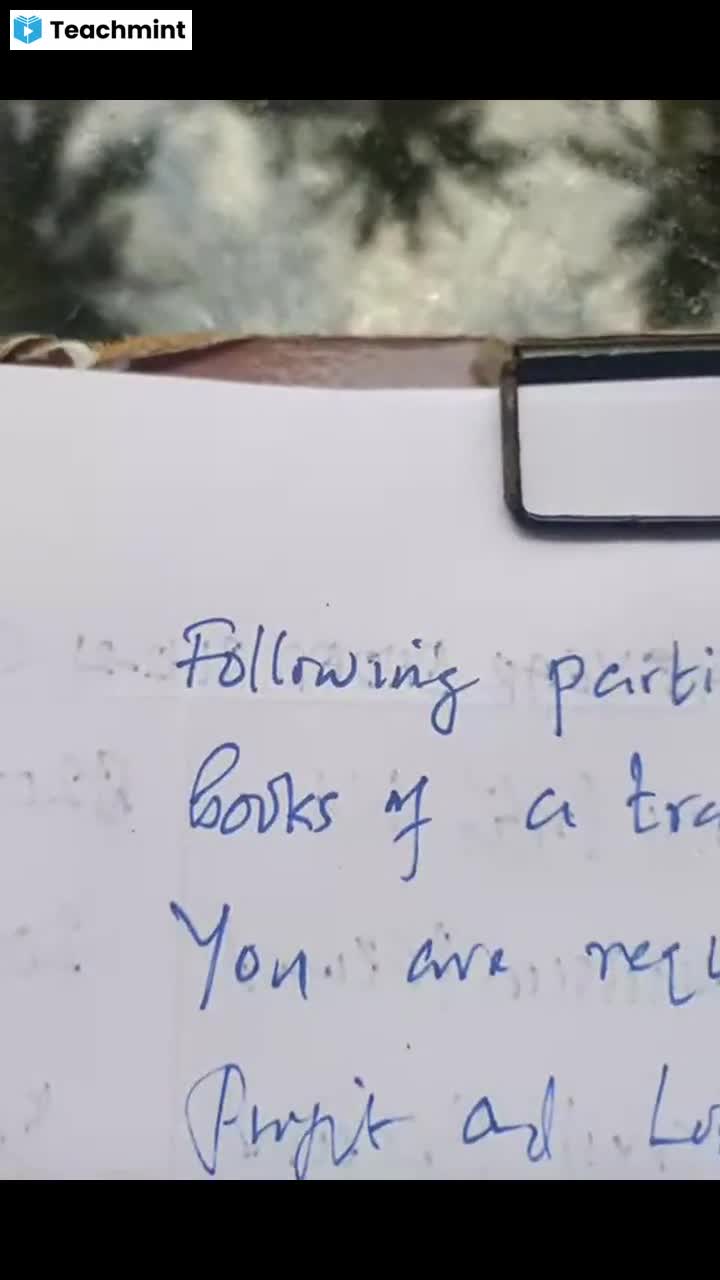 Teachmint
Following parti
books of a tra
You are requ
Profit ad Lo